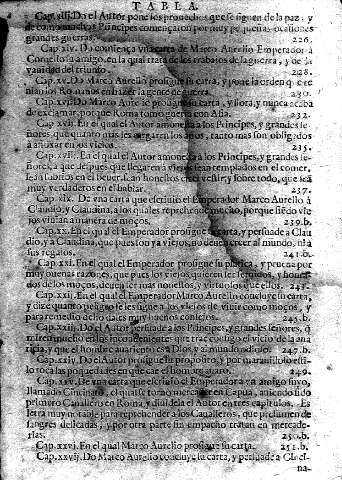 TABLA.
Cap. xiij. Do el Autor pone los prouechos que se siguen de la paz, y
de como muchos Principes començaron por muy pequeñas ocasiones
grandes guerras. 226.
Cap. xiv. Do comiença vna carta de Marco Aurelio Emperador à
Cornelio su amigo, en la qual trata de los trabajos de la guerra, y de la
vanidad del triunfo. 228.
Cap. xv. Do Marco Aurelio prosigue su carta, y pone la orden que te
nian los Romanos en hazer la gente de guerra. 230.
Cap. xvi. Do Marco Aurelio prosigue su carta, y llora, y nunca acaba
de exclamar, porque Roma tomo guerra con Asia. 232.
Cap. xvij. En el qual el Autor amonesta a los Principes, y grandes se-
ñores, que quanto mas les cargaren los años, tanto mas son obligados
à afloxar en los vicios. 235.
Cap. xviij. En el qual el Autor amonesta a los Principes, y grandes se-
ñores, a que despues que llegaren a viejos sean templados en el comer,
sean sobrios en el beuer, sean honestos en el vestir, y sobre todo, que sea
muy verdaderos en el hablar. 237.
Cap. xix. De vna carta que escriuio el Emperador Marco Aurelio à
Claudio, y Claudina, a los quales reprehende mucho, porque siendo vie
jos viuian a manera de moços. 239.b.
Cap. xx. En el qual el Emperador prosigue su carta, y persuade a Clau
dio, y a Claudina, que pues son ya viejos, no deuen creer al mundo, ni à
sus regalos. 241.b.
Cap. xxi. En el qual el Emperador prosigue su platica, y prueua por
muy buenas razones, que pues los viejos quieren ser seruidos, y honrra-
dos de los moços, deuen ser mas honestos, y virtuosos que ellos. 243.
Cap. xxij. En el qual el Emperador Marco Aurelio concluye su carta,
y dize quanto peligro se les sigue a los viejos de viuir como moços, y
para remedio dello dales muy buenos consejos. 245.b.
Cap. xxiij. Do el Autor persuade a los Principes, y grandes señores, q
miren mucho en los inconuenientes que trae consigo el vicio de la aua
ricia, y que el hombre auariento es a Dios y al mundo odioso. 247.b.
Cap. xxiiij. Do el Autor prosigue su proposito, y por marauilloso esti-
lo toca las poquedades en que cae el hombre auaro. 249.
Cap. xxv. De vna carta que escriuio el Emperador a vn amigo suyo,
llamado Cincinato, el qual se torno mercader en Capua, auiendo sido
primero Cauallero en Roma, y diuidela el Autor en tres capitulos. Es
letra muy notable para reprehender a los Caualleros, que presumen de
sangres delicadas, y por otra parte sin empacho tratan en merca-
derias. 250.b.
Cap. xxvj. En el qual Marco Aurelio prosigue su carta. 251.b.
Cap. xxvij. Do Marco Aurelio concluye su carta, y persuade a Cinci-
na-